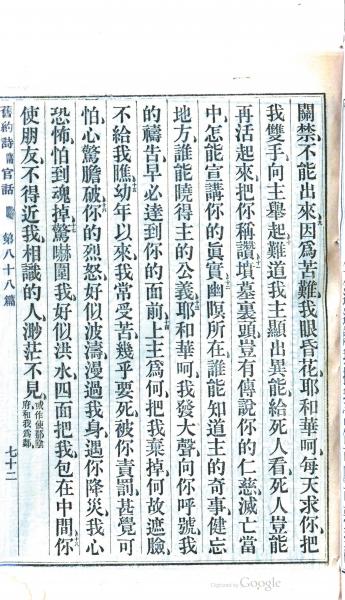 關禁、不能出來、因爲苦難、我眼昏花、耶和華呵、每天求你、把
我雙手、向主舉起、難道我主、顯出異能、給死人看、死人豈能
再活起來、把你稱讚、墳墓裏頭、豈有傳說、你的仁慈、滅亡當
中、怎能宣講、你的眞實、幽暝所在、誰能知道、主的奇事、健忘
地方、誰能曉得、主的公義、耶和華呵、我發大聲、向你呼號、我
的禱告、早必達到、你的面前、上主爲何、把我棄掉、何故遮臉、
不給我瞧、幼年以來、我常受苦、幾乎要死、被你責罰、甚覺可
怕、心驚膽破、你的烈怒、好似波濤、漫過我身、遇你降災、我心
恐怖、怕到魂掉、驚嚇圍我、好似洪水、四面把我、包在中間、你
使朋友、不得近我、相識的人、渺茫不見、或作使那陰府和我爲鄰
舊約詩篇官話 第八十八篇 七十二
Digitized by Google